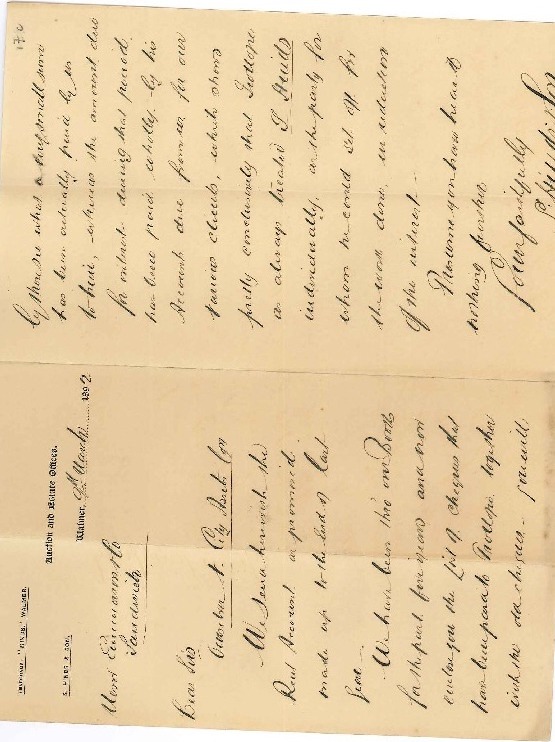 S. HINDS & SON,
Auction and Estate Offices,
Walmer, March 1892
Messrs Emmerson & Co
Sandwich
Dear Sirs
We send herewith the
Rent Account as promised
made up to the End of last
year —
We have been thro our Books
for the past five years and now
enclose you the List of cheques that
have been paid to together
with the old cheques — you will
by these see what a very small sum
has been actually paid by us
to him, whereas the amount due
for interest during that period
has been paid wholly by his
Account due from us for our
various clients, which shows
pretty conclusively that
as always treated S Hinds
individually, as the party for
whom he could set off for
the work done, in reduction
of the interest —
Presume you have heard
nothing further
Yours faithfully
170